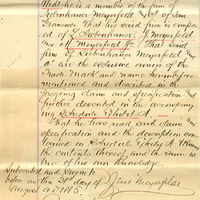 that he is a member of the firm of
Liebenhauer Meyerfeld & Co of San
Francisco That his said firm is compos-
ed of L. Liebenhauer, J. Meyerfeld
and M. Meyerfeld Jr. That said
firm of Liebenhauer Meyerfeld and
Co are the exclusive owners of the
Trade Mark and name hereinbefore
mentioned and described in the
foregoing claim and specification and
further denoted in the accompany-
ing Schedule Exhibit A.
That he has read said claim
specification and the description con-
tained in Schedule Exhibit A knows
the contents thereof and the same to
true of his own knowledge
Subscribed and sworn to
before me this day of
August A.D. 1885 Meyerfeld